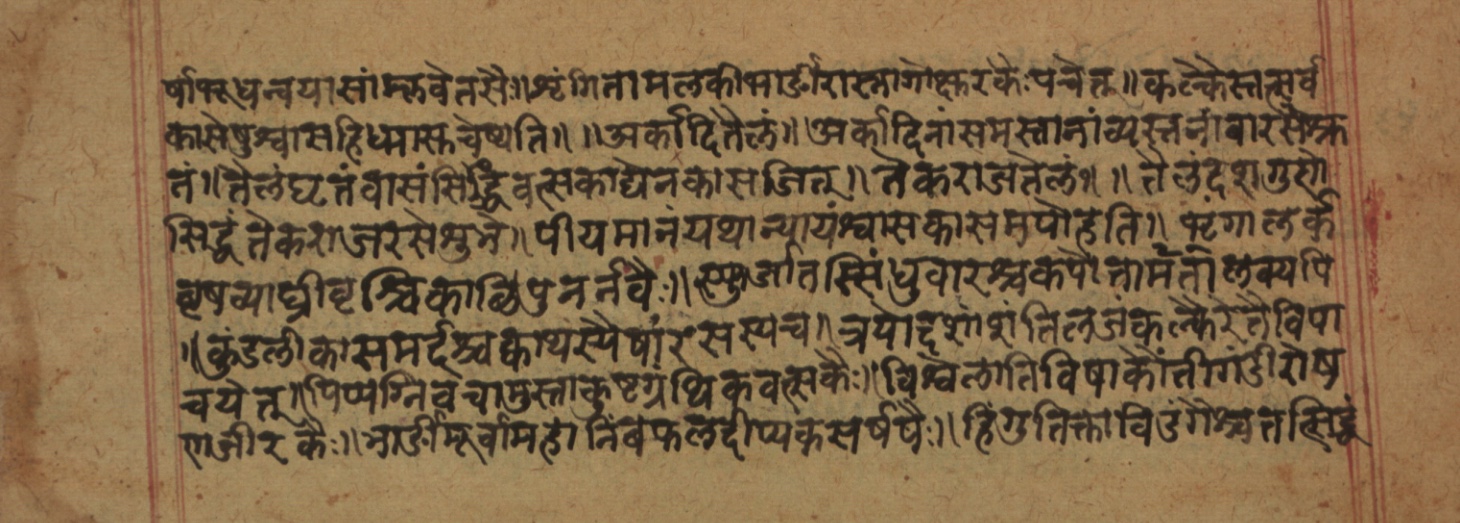 र्षाभूधन्वयासांम्लवेतसैः॥शृंगितामलकीभार्ङीरास्नागोक्षुरकैःपचेत्॥कल्कैस्तत्सर्व
कासेषुश्वासहिध्मासुचेष्यति॥॥अर्कादितैलं॥अर्कादिनांसमस्तानांव्यस्तनांवारसैःकृ
तं॥तैलंघृतंवासंसिद्धिंवत्सकाद्येनकासजित्॥तैकराजतैलं॥॥तैलंदशगुणे
सिद्धंतैकराजरसेशुभे॥पीयमानंयथान्यायंश्वासकासमपोहति॥भृंगालर्क
वृषव्याघ्रीवृश्चिकालिपुनर्नवैः॥स्फूर्जातस्सिंधुवारश्चकपोतामतालक्यपि
॥कुंडलीकासमर्दश्चक्वाथस्यैषांरसस्यच॥त्रयोदशांशंतिलजंकल्कैरेतैविपा
चयेत्॥पिप्पग्निवचामुस्ताकुष्टग्रंथिकवत्सकैः॥विश्वैलातिविषाकौंतीगंडीरोष
णाजीरकैः॥भार्ङीमूर्वामहानिंबफलदीप्यकसर्षपैः॥हिंगुतिक्ताविडंगैश्चतत्सिद्धं